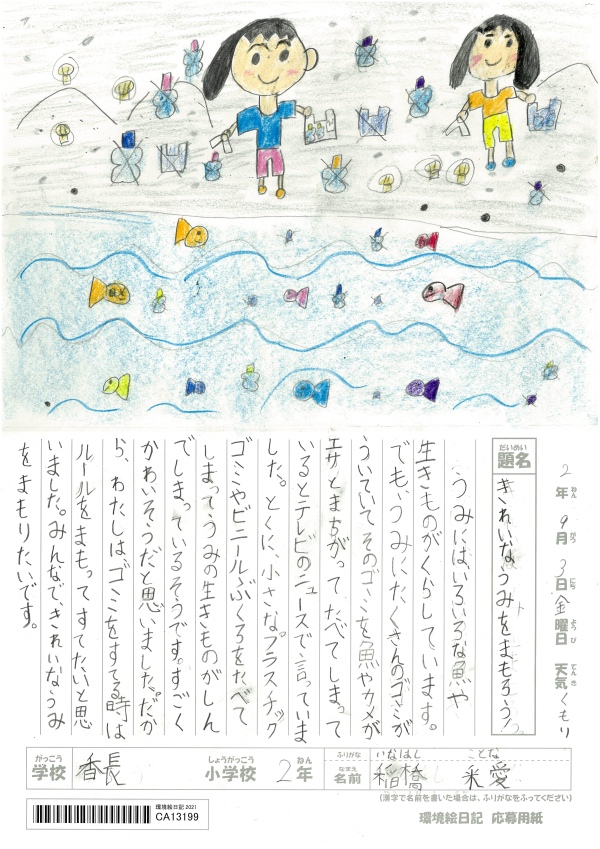 2年9月3日金曜日 天気くもり
ねん がつ にち ようび てんき
だいめい
題名 きれいなうみをまもろう
うみにはいろいろな魚や
生きものがくらしています。
でも、うみにたくさんのゴミが
ういていてそのゴミを魚やカメが
エサとまちがってたべてしまって
いるとテレビのニュースで言っていま
した。とくに、小さなプラスチック
ゴミやビニールぶくろをたべて
しまってうみの生きものがしん
でしまっているそうです。すごく
かわいそうだと思いました。だか
ら、わたしはゴミをすてる時は
ルールをまもってすてたいと思
いました。みんなで、きれいなうみ
をまもりたいです。
がっこう しょうがっこう ねん ふりがな いなはし ことな
学校 香長 小学校 2年 なまえ 名前 稲橋 采愛
(漢字で名前を書いた場合は、ふりがなをふってください)
環境絵日記 2021
CA13199
環境絵日記 応募用紙